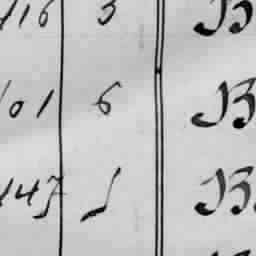 116 3 B
101 6 B
147 1 B